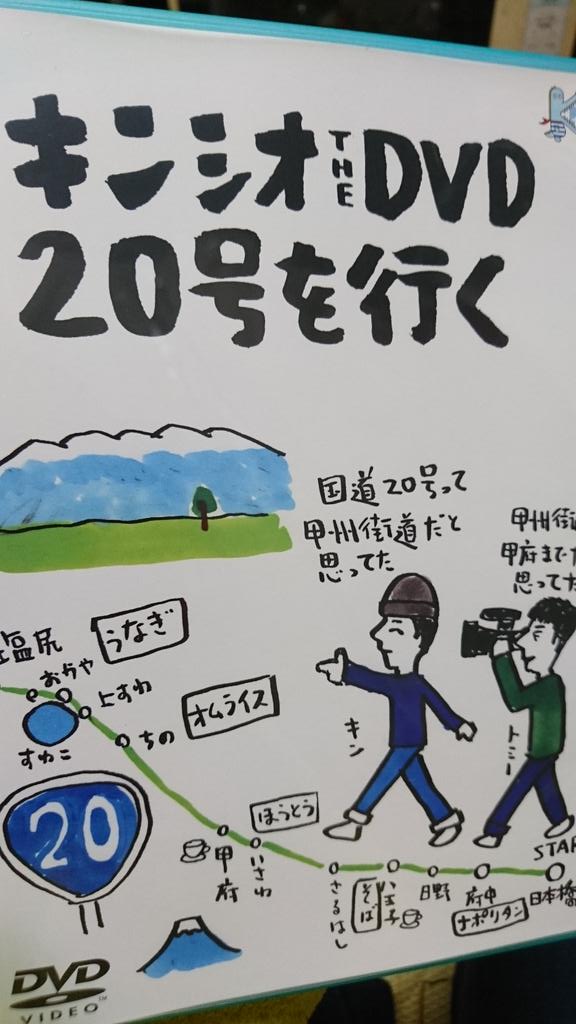 キンシオ THE DVD
20号を行く
国道20号って
甲州街道だと
思ってた
甲州街
甲府まで
思ってた
塩尻
うなぎ
おかや
上すわ
すわこ
ちの
オムライス
20
キン
トミー
ほうとう
甲府
いさわ
さるはし
そば
八王子
日野
府中
ナポリタン
STAR
日本橋
DVD
VIDEO™